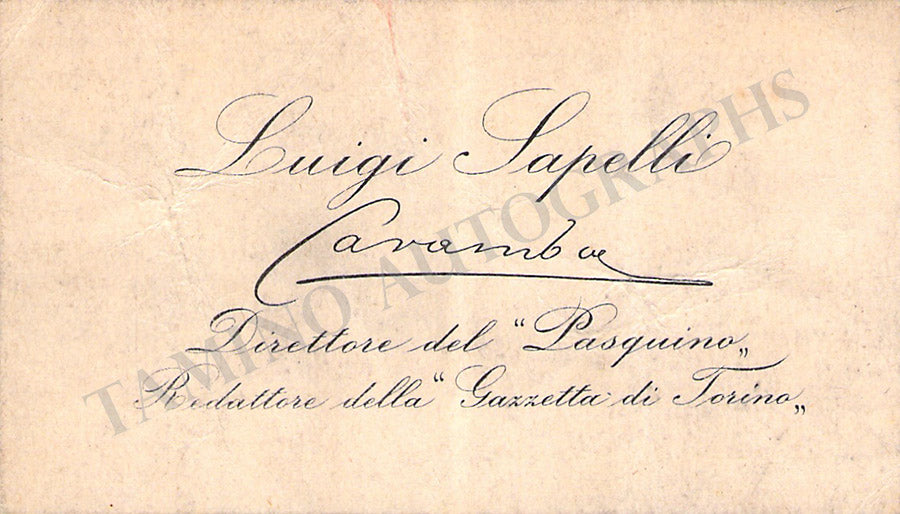 Luigi Sapelli
Caramba
Direttore del "Pasquino„
Redattore della "Gazzetta di Torino„
TAMINO AUTOGRAPHS